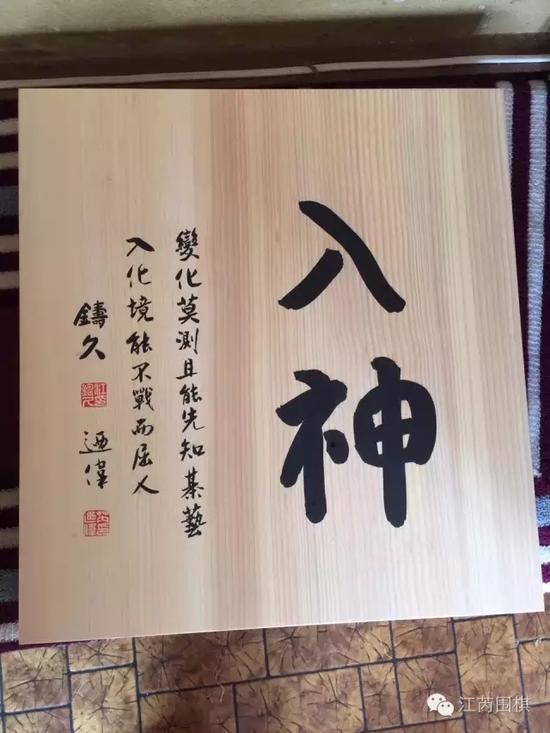 入神
變化莫測且能先知棊藝
入化境能不戰而屈人
鑄久
迺偉
江芮围棋